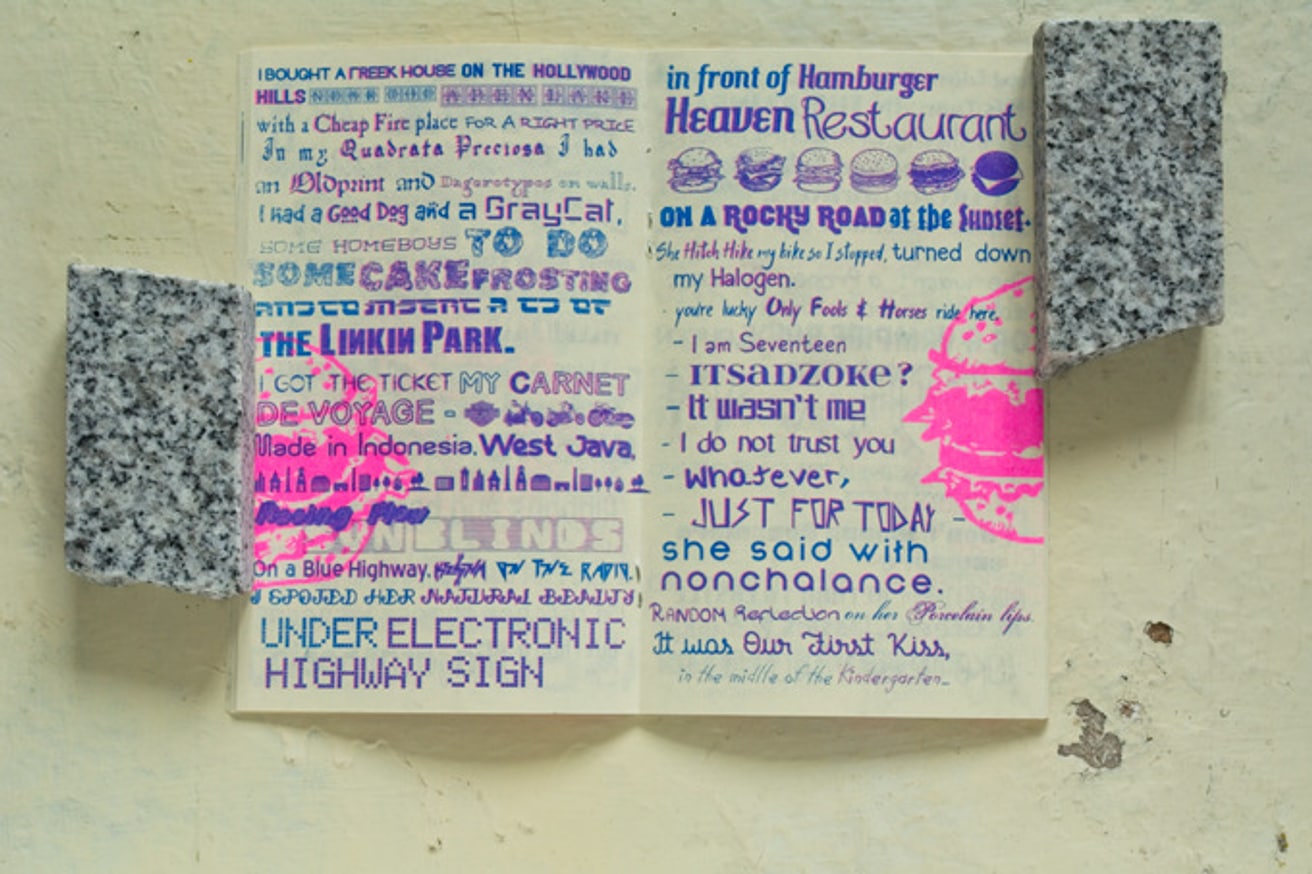 I BOUGHT A FREEK HOUSE ON THE HOLLYWOOD
HILLS NEAR THE ADEN LAKE
with a Cheap Fire place FOR A RIGHT PRICE
In my Quadrata Preciosa I had
an Oldprint and Dagerotypos on walls.
I had a Good Dog and a GrayCat,
SOME HOMEBOYS TO DO
SOME CAKE FROSTING
AND TO INSERT A CD OF
THE LINKIN PARK.
I GOT THE TICKET MY CARNET
DE VOYAGE -
Made in Indonesia. West Java,
Racing Flow
SUNBLINDS
On a Blue Highway. ON THE RADIO.
I SPOTED HER NATURAL BEAUTY
UNDER ELECTRONIC
HIGHWAY SIGN
in front of Hamburger
Heaven Restaurant
ON A ROCKY ROAD at the Sunset.
She Hitch Hike my bike so I stopped, turned down
my Halogen.
you're lucky Only Fools & Horses ride here.
- I am Seventeen
- ITSADZOKE?
- It wasn't me
- I do not trust you
- Whatever,
- JUST FOR TODAY -
she said with
nonchalance.
RANDOM Reflection on her Porcelain lips.
It was Our First Kiss,
in the midlle of the Kindergarten_